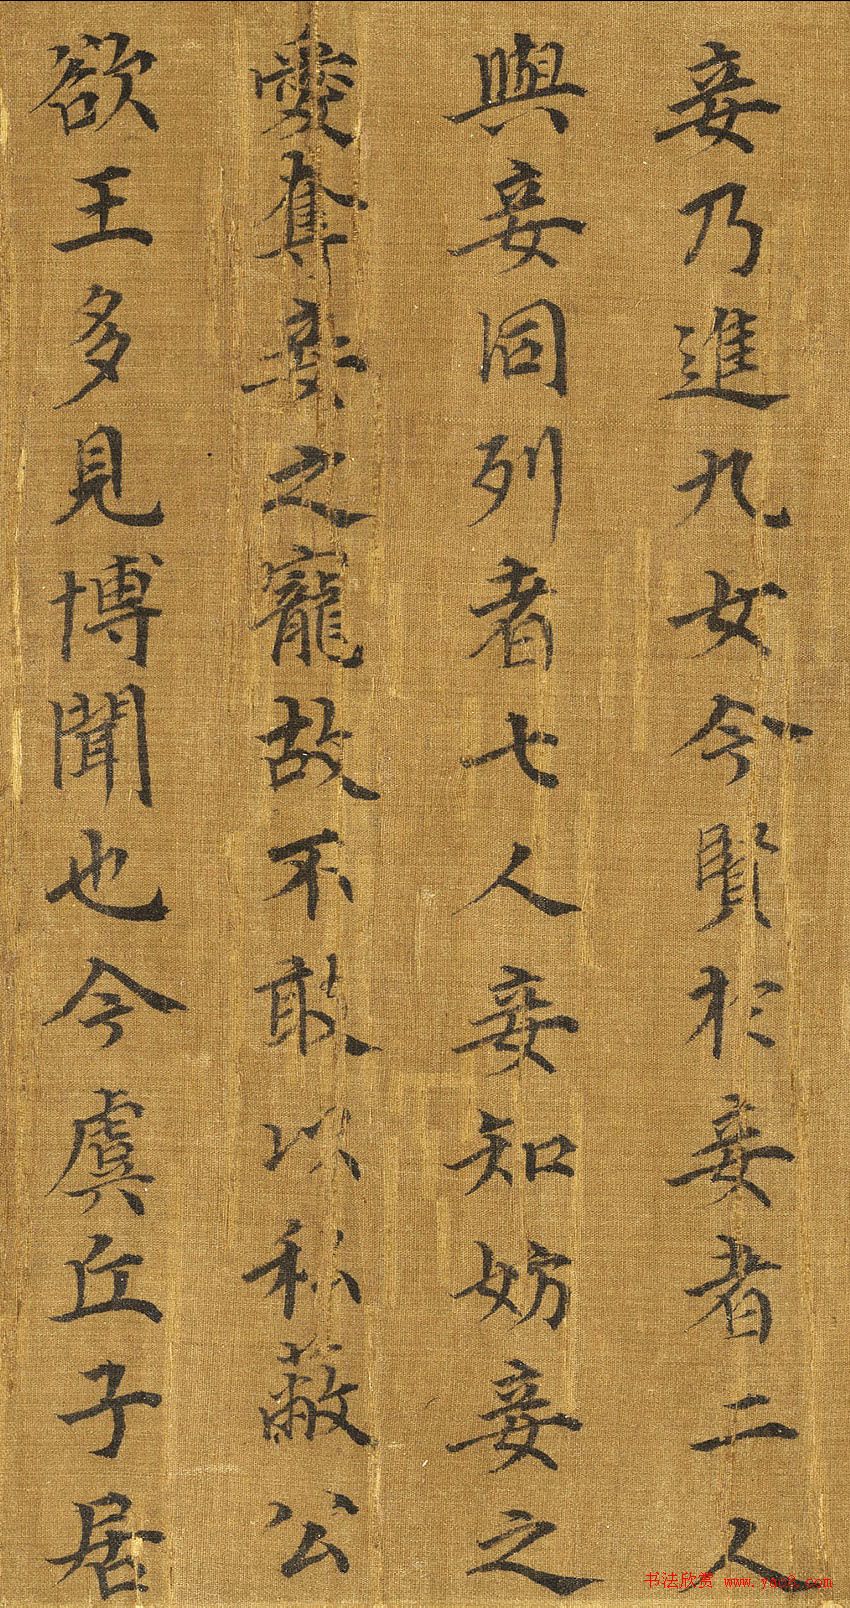 妾乃進九女今賢於妾者二人
與妾同列者七人妾知妨妾之
愛奪妾之寵故不敢以私蔽公
欲王多見博聞也今虞丘子居
书法欣赏